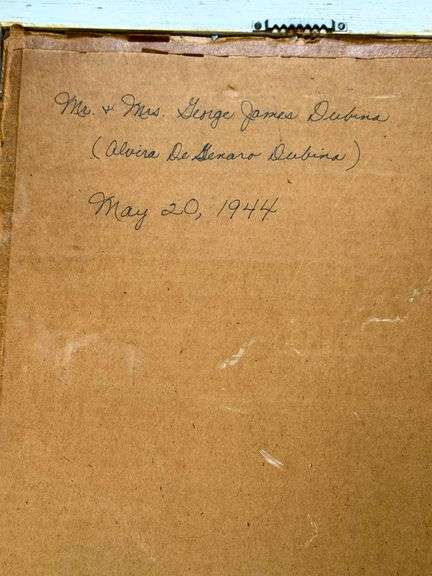 Mr. & Mrs. George James Dubina
(Alvira De Genaro Dubina)
May 20, 1944